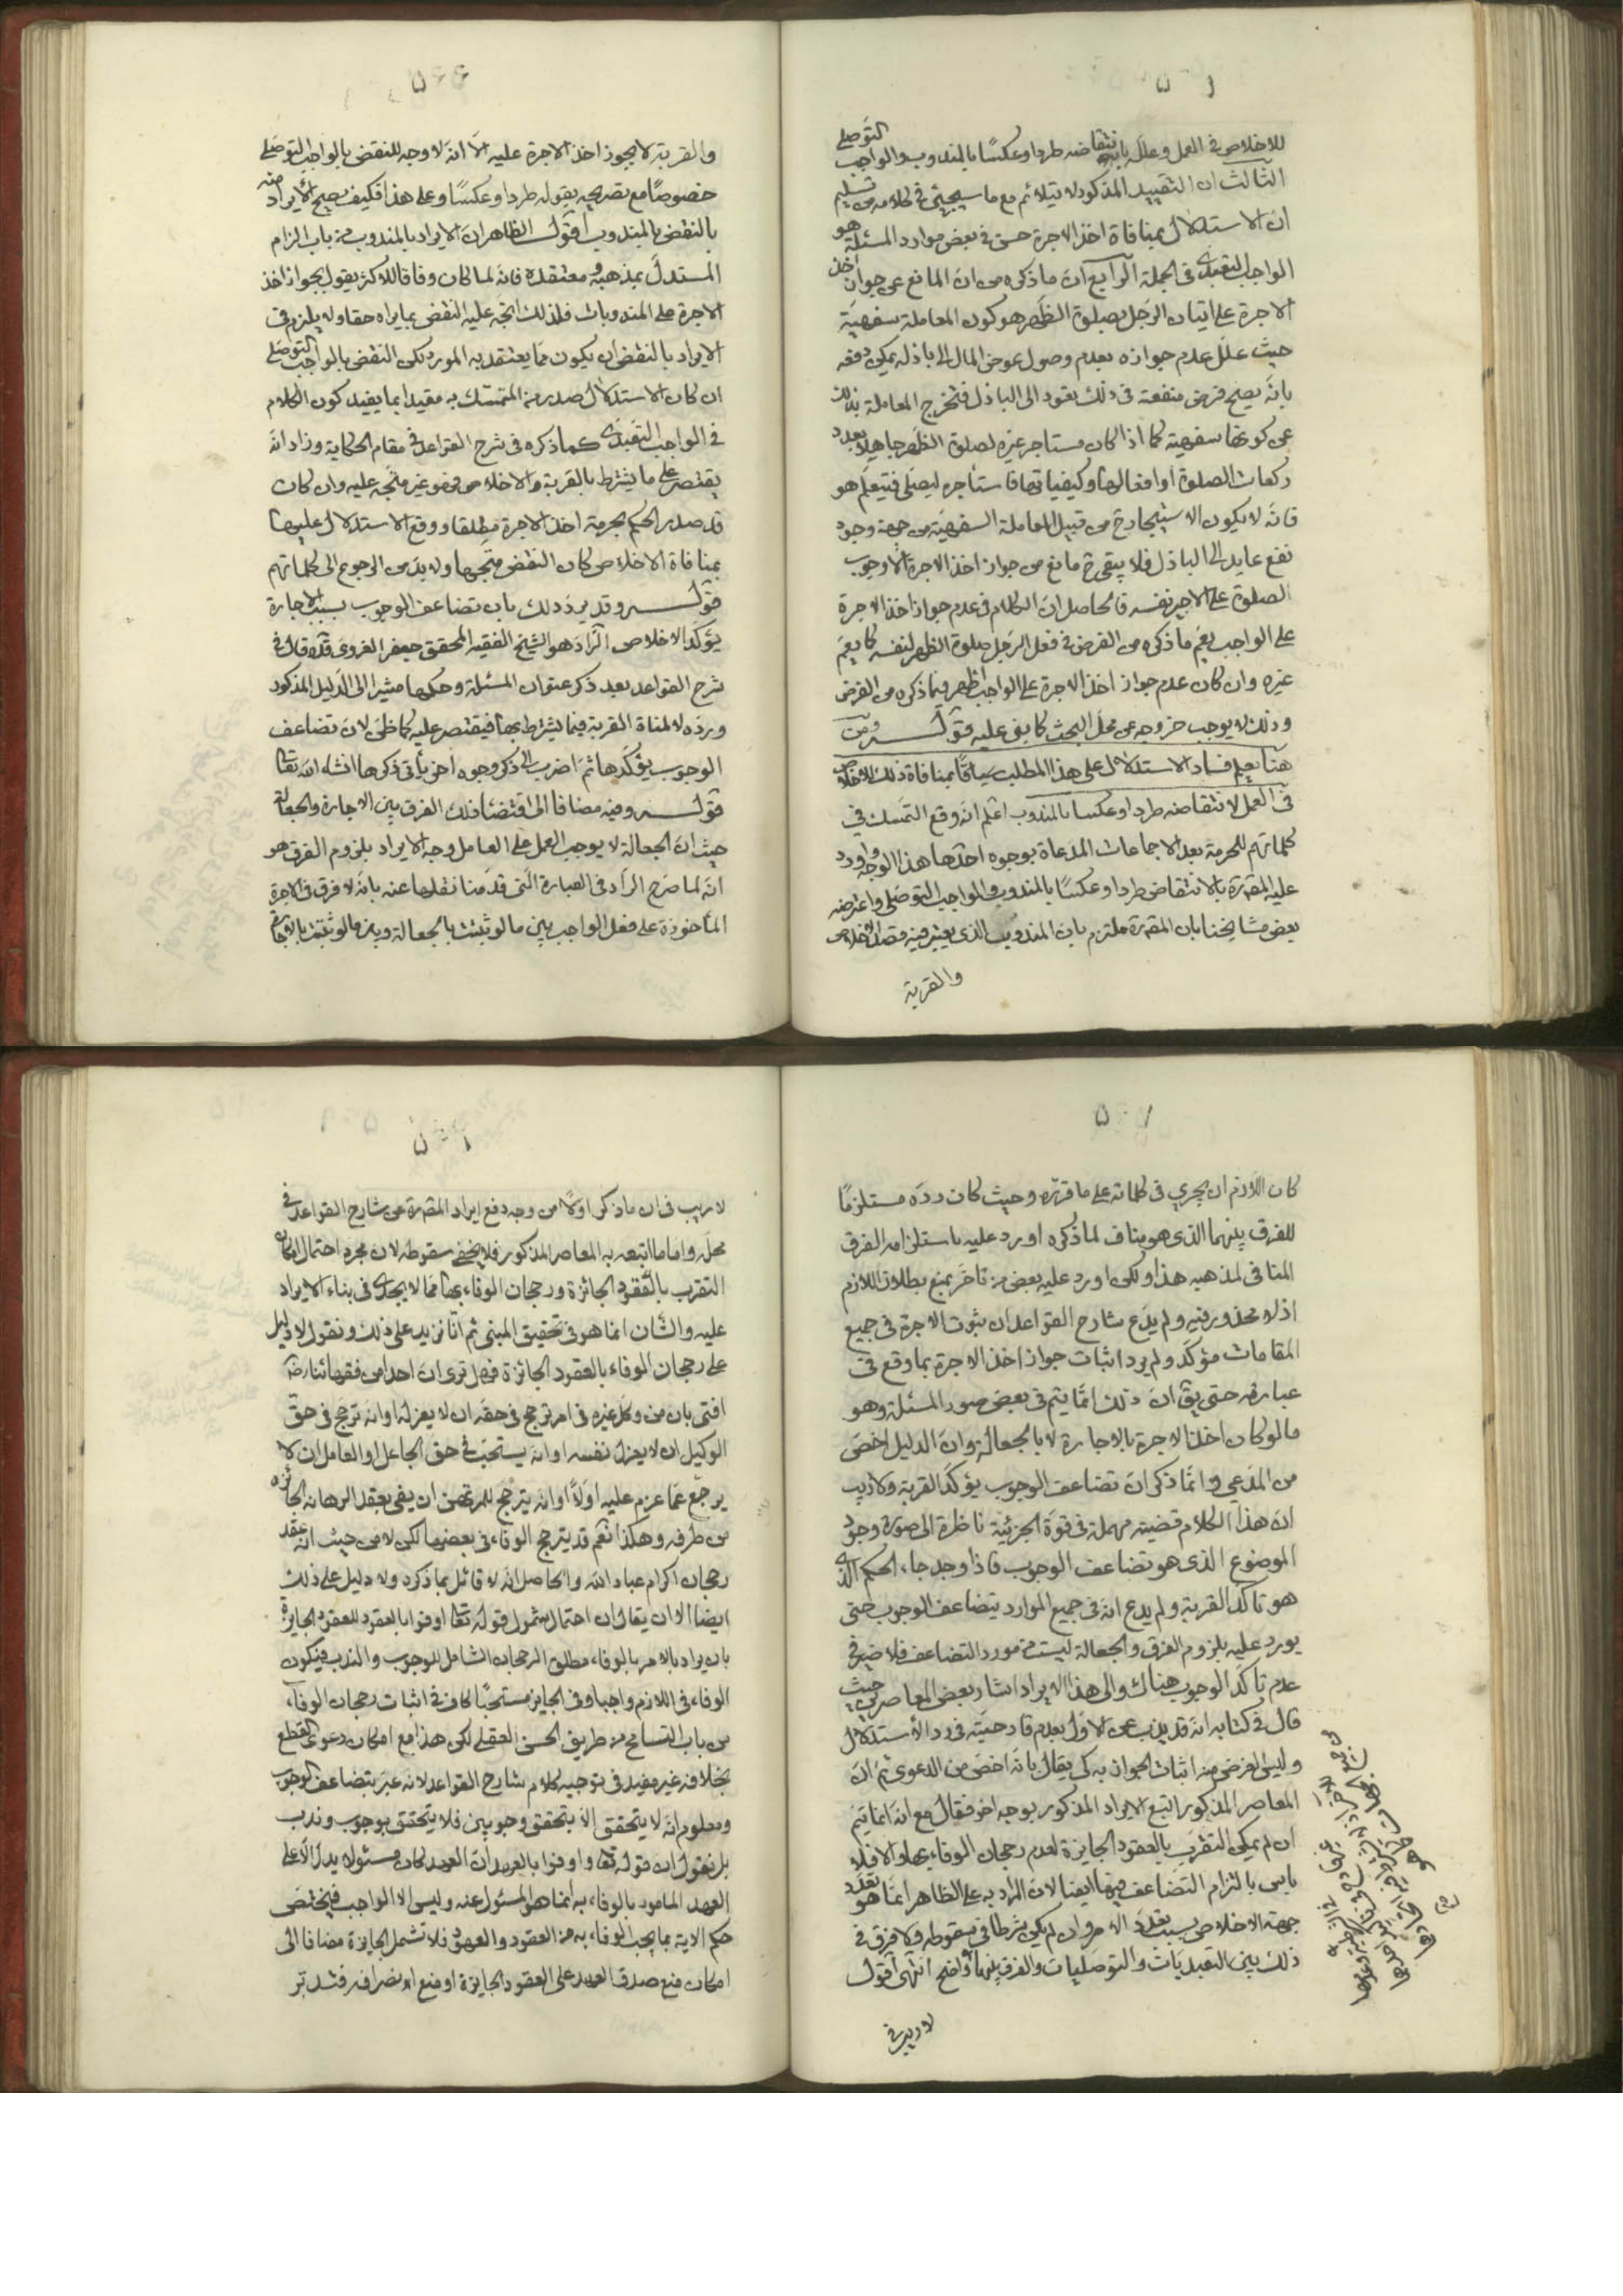 للاخلاص في العمل وعلله بانتقاضه طردا وعكسًا بالمندوب والواجب التوصلي
الثالث ان التقييد المذكور لا يتلائم مع ما سيجيئ في كلامه من تسليم
ان الاستدلال بمنافاة اخذ الاجرة حسن في بعض موارد المسئلة هو
الواجب التعبدي في الجملة الرابع ان ما ذكره من ان المانع عن جواز اخذ
الاجرة على اتيان الرجل بصلوة الظهر هو كون المعاملة سفهية
حيث علل عدم جوازه بعدم وصول عوض المال الى باذله يمكن دفعه
بانه يصح فرض منفعة في ذلك تعود الى الباذل فتخرج المعاملة بذلك
عن كونها سفهية كما اذا كان مستاجر غيره لصلوة الظهر جاهلا بعدد
ركعات الصلوة او افعالها وكيفياتها فاستاجره ليصلى فيتعلم هو
فانه لا يكون الاستيجار ح من قبيل المعاملة السفهية من جهة وجود
نفع عايد الى الباذل فلا يبقى ح مانع من جواز اخذ الاجرة الا وجوب
الصلوة على الاجير نفسه فالحاصل ان الكلام في عدم جواز اخذ الاجرة
على الواجب يعم ما ذكره من الفرض في فعل الرجل صلوة الظهر لنفسه كما يعم
غيره وان كان عدم جواز اخذ الاجرة على الواجب اظهر فيما ذكره من الفرض
وذلك لا يوجب خروجه عن محل البحث كما بفى عليه قوله ومن
هنا يعلم فساد الاستدلال على هذا المطلب سياقًا بمنافاة ذلك للاخلاص
في العمل لانتقاضه طردا وعكسا بالمندوب اعلم انه وقع التمسك في
كلماتهم للحرمة بعد الاجماعات المدعاة بوجوه احدها هذا الوجه واورد
عليه المقرة بالانتقاض طردا وعكسًا بالمندوب والواجب التوصلي واعترضه
بعض مشايخنا بان المقرة ملتزم بان المندوب الذي يعتبر فيه قصد الاخلاص
والقربة
والقربة لا يجوز اخذ الاجرة عليه الا انه لا وجه للنقض بالواجب التوصلي
خصوصًا مع تصريحه بقوله طردا وعكسًا وعلى هذا فكيف يصح الايراد منه
بالنقض بالمندوب اقول الظاهر ان الايراد بالمندوب من باب الزام
المستدل بمذهبه ومعتقده فانه لما كان وفاقا للاكثر يقول بجواز اخذ
الاجرة على المندوبات فلذلك اتجه عليه النقض بما يراه حقا ولا يلزم في
الايراد بالنقض ان يكون مما يعتقد به المورد لكن النقض بالواجب التوصلي
ان كان الاستدلال صدر من المتمسك به مقيدا بما يفيد كون الكلام
في الواجب التعبدي كما ذكره في شرح القواعد في مقام الحكاية وزاد انه
يقتصر على ما يشترط بالقربة والاخلاص فهو غير متجه عليه وان كان
قد صدر الحكم بحرمة اخذ الاجرة مطلقا ووقع الاستدلال عليها
بمنافاة الاخلاص كان النقض متجها ولا بد من الرجوع الى كلماتهم
قوله وقد يرد ذلك بان تضاعف الوجوب بسبب الاجارة
يؤكد الاخلاص الراد هو الشيخ الفقيه المحقق جعفر الغروى قده قال في
شرح القواعد بعد ذكر عنوان المسئلة وحكمها مشيرا الى الدليل المذكور
ورده لا لمنافاة القربة فيما يشترط بها فيقتصر عليه كما ظن لان تضاعف
الوجوب يؤكدها ثم اضرب الى ذكر وجوه اخر يأتي ذكرها انشاء الله تعالى
قوله وفيه مضافا الى اقتضاء ذلك الفرق بين الاجارة والجعالة
حيث ان الجعالة لا يوجب العمل على العامل وجه الايراد بلزوم الفرق هو
انه لما صرح الراد في العبارة التي قدمنا نقلها عنه بانه لا فرق في الاجرة
المأخوذة على فعل الواجب بين ما لو ثبتت بالجعالة وبين ما لو ثبتت بالاجارة
كان اللازم ان يجرى في كلماته على ما قرره وحيث كان رده مستلزمًا
للفرق بينهما الذي هو مناف لما ذكره اورد عليه باستلزامه الفرق
المنافى لمذهبه هذا ولكن اورد عليه بعض من تاخر بمنع بطلان اللازم
اذ لا محذور فيه ولم يدع شارح القواعد ان ثبوت الاجرة في جميع
المقامات مؤكد ولم يرد اثبات جواز اخذ الاجرة بما وقع في
عبارته حتى يق ان ذلك انما يتم في بعض صور المسئلة وهو
ما لو كان اخذ الاجرة بالاجارة لا بالجعالة وان الدليل اخص
من المدعى وانما ذكر ان تضاعف الوجوب يؤكد القربة ولا ريب
ان هذا الكلام قضية مهملة في قوة الجزئية ناظرة الى صورة وجود
الموضوع الذي هو تضاعف الوجوب فاذا وجد جاء الحكم الذي
هو تاكد القربة ولم يدع انه في جميع الموارد يتضاعف الوجوب حتى
يورد عليه بلزوم الفرق والجعالة ليست من مورد التضاعف فلا ضير في
عدم تاكد الوجوب هناك والى هذا الايراد اشار بعض المعاصرين حيث
قال في كتابه انه قد يذب عن الاول بعدم قادحيته في رد الاستدلال
وليس الغرض منه اثبات الجواز به كي يقال بانه اخص من الدعوى ثم ان
المعاصر المذكور اتبع الايراد المذكور بوجه اخر فقال مع انه انما يتم
ان لم يمكن التقرب بالعقود الجايزة لعدم رجحان الوفاء بها والا فلا
باس بالتزام التضاعف فيها ايضا لان المراد به على الظاهر انما هو تعدد
جهة الاخلاص بسبب تعدد الامر وان لم يكن شرطا في سقوطه ولا فرق في
ذلك بين التعبديات والتوصليات والفرق بينهما واضح انتهى اقول
لا ريب في
لا ريب في ان ما ذكر اولًا من وجه دفع ايراد المقرة عن شارح القواعد في
محله واما ما اتبعه به المعاصر المذكور فلا يخفى سقوطه لان مجرد احتمال امكان
التقرب بالعقود الجائزة ورجحان الوفاء بها مما لا يجدى في بناء الايراد
عليه والشان انما هو في تحقيق المبنى ثم انا نزيد على ذلك ونقول لا دليل
على رجحان الوفاء بالعقود الجائزة فهل ترى ان احدا من فقهائنا رض
افتى بان من وكل غيره في امر ترجح في حقه ان لا يعزله او انه ترجح في حق
الوكيل ان لا يعزل نفسه او انه يستحب في حق الجاعل او العامل ان لا
يرجع عما عزم عليه اولًا او انه يترجح للمرتهن ان يفى بعقد الرهانة الجائزة
من طرفه وهكذا نعم قد يترجح الوفاء في بعضها لكن لا من حيث انه عقد
رجحان اكرام عباد الله والحاصل انه لا قائل بما ذكره ولا دليل على ذلك
ايضا الا ان يقال ان احتمال شمول قوله تعالى اوفوا بالعقود للعقود الجايزة
بان يراد بالامر بالوفاء مطلق الرجحان الشامل للوجوب والندب فيكون
الوفاء في اللازم واجبا وفي الجايز مستحبًا كاف في اثبات رجحان الوفاء
من باب التسامح من طريق الحسن العقلي لكن هذا مع امكان دعوى القطع
بخلافه غير مفيد في توجيه كلام شارح القواعد لانه عبر بتضاعف الوجوب
ومعلوم انه لا يتحقق الا بتحقق وجوبين فلا يتحقق بوجوب وندب
بل نقول ان قوله تعالى واوفوا بالعهد ان العهد كان مسئولا يدل الا على
العهد المامور بالوفاء به انما هو المسئول عنه وليس الا الواجب فيختص
حكم الاية بما يجب الوفاء به من العقود والعهود فلا تشمل الجايزة مضافا الى
امكان منع صدق العهد على العقود الجايزة او منع انصرافه فتدبر